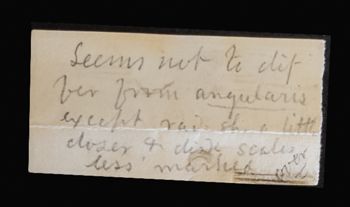 Seems not to dif
fer from angularis
except radl st. a little
closer & disk scales
less marked
over